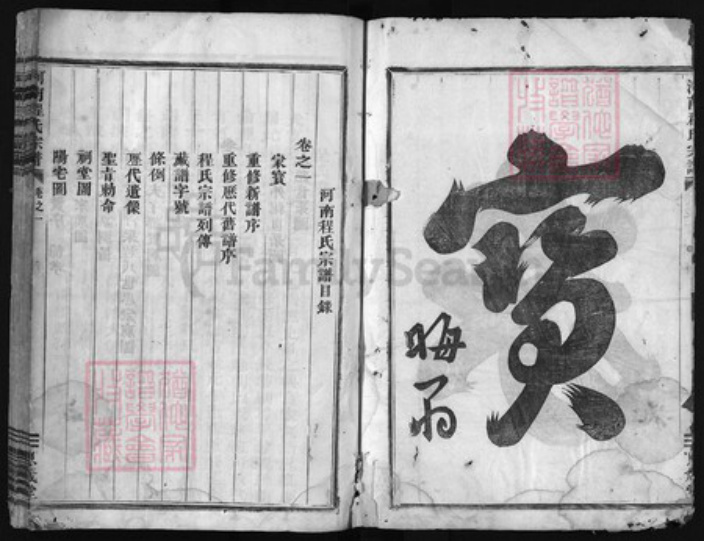 寶
晦翁
河南程氏宗譜目錄
卷之一
家寶
重修新譜序
重修歷代舊譜序
程氏宗譜列傳
藏譜字號
條例
歷代遺像
聖旨勅命
祠堂圖
陽宅圖
河南程氏宗譜
卷之一
FamilySearch